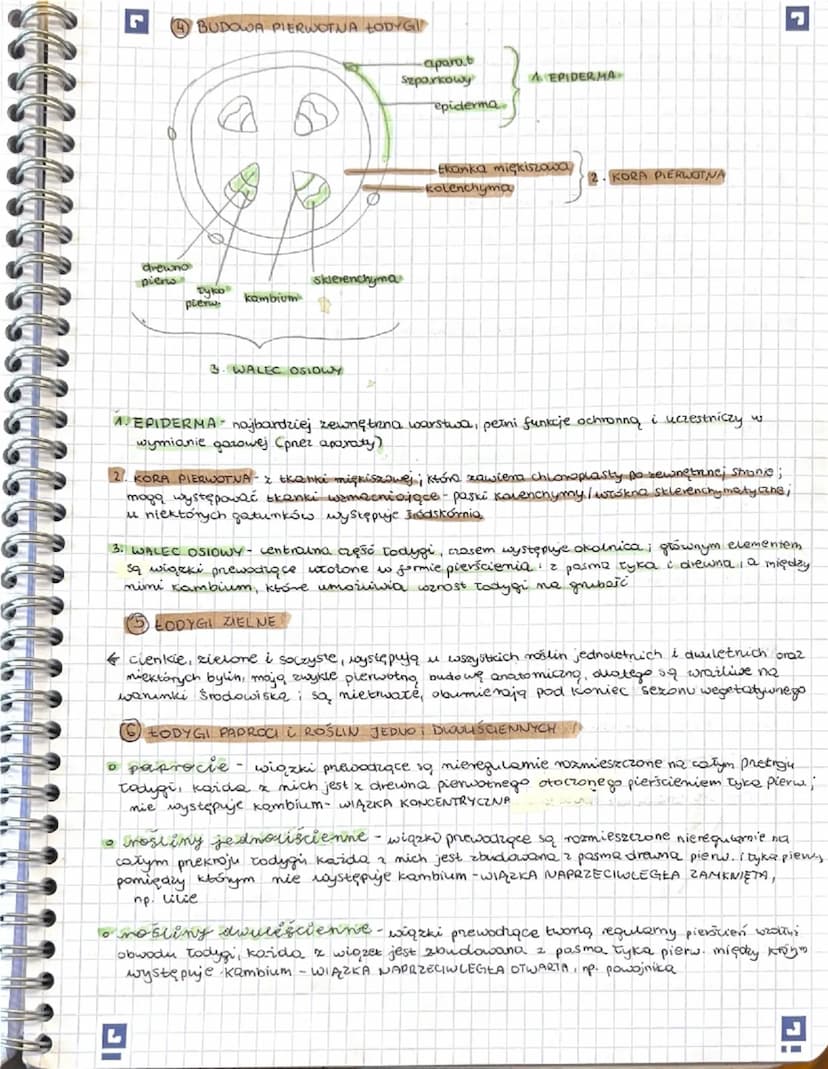 4 BUDOWA PIERWOTNA ŁODYGI
aparat
szparkowy
epiderma
1. EPIDERMA
tkanka miękiszowa
kolenchyma
2. KORA PIERWOTNA
drewno
pierw.
łyko
pierw.
kambium
sklerenchyma
3. WALEC OSIOWY
1. EPIDERMA - najbardziej zewnętrzna warstwa, pełni funkcję ochronną i uczestniczy w
wymianie gazowej (przez aparaty)
2. KORA PIERWOTNA - z tkanki miękiszowej, która zawiera chloroplasty po zewnętrznej stronie;
mogą występować tkanki wzmacniające - paski kolenchymy / włókna sklerenchymatyczne;
u niektórych gatunków występuje śródskórnia
3. WALEC OSIOWY - centralna część łodygi, czasem występuje okolnica; głównym elementem
są wiązki przewodzące ułożone w formie pierścienia: z pasma łyka i drewna, a między
nimi kambium, które umożliwia wzrost łodygi na grubość
5 ŁODYGI ZIELNE
← cienkie, zielone i soczyste, występują u wszystkich roślin jednoletnich i dwuletnich oraz
niektórych bylin, mają zwykle pierwotną budowę anatomiczną, dlatego są wrażliwe na
warunki środowiska; są nietrwałe, obumierają pod koniec sezonu wegetatywnego
6 ŁODYGI PAPROCI i ROŚLIN JEDNO i DWULIŚCIENNYCH
paprocie - wiązki przewodzące są nieregularnie rozmieszczone na całym przekroju
łodygi, każda z nich jest z drewna pierwotnego otoczonego pierścieniem łyka pierw.;
nie występuje kambium - WIĄZKA KONCENTRYCZNA
rośliny jednoliścienne - wiązki przewodzące są rozmieszczone nieregularnie na
całym przekroju łodygi, każda z nich jest zbudowana z pasma drewna pierw. i łyka pierw,
pomiędzy którym nie występuje kambium - WIĄZKA NAPRZECIWLEGŁA ZAMKNIĘTA,
np. lilie
rośliny dwuliścienne - wiązki przewodzące tworzą regularny pierścień wzdłuż
obwodu łodygi, każda z wiązek jest zbudowana z pasma łyka pierw. między którym
występuje kambium - WIĄZKA NAPRZECIWLEGŁA OTWARTA, np. powojnika